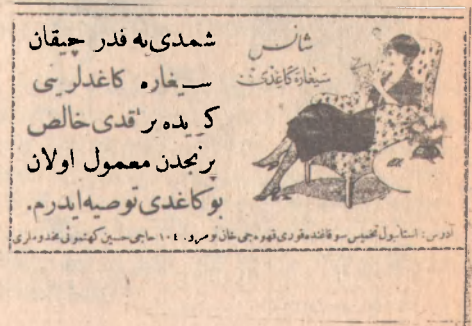 شمدی‌یه قدر چیقان
سیغاره کاغدلرینی
خالص
پرنجدن معمول اولان
بوکاغدی توصیه ایدرم.
شانس
سیغاره کاغدی
آدرس: استانبول تحمیس سوقاغنده قوری قهوه‌جی خان نومرو. ١٠٤ حاجی حسین